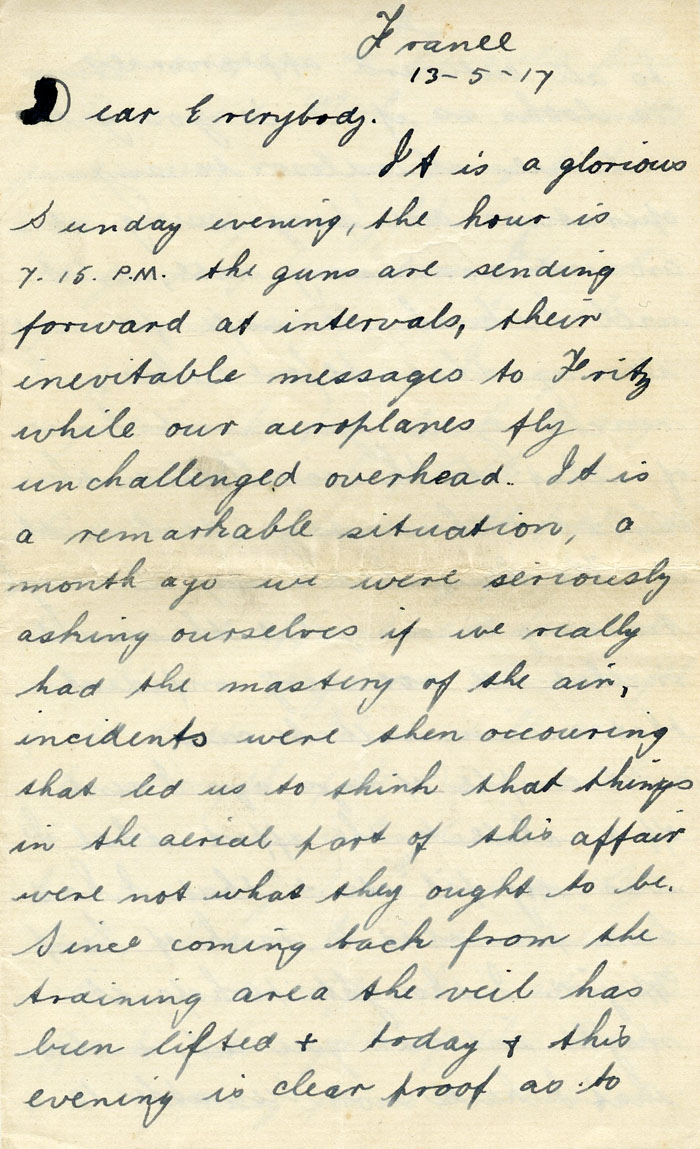 France
13-5-17
Dear Everybody.
It is a glorious
Sunday evening, the hour is
7.15. P.M. the guns are sending
forward at intervals, their
inevitable messages to Fritz
while our aeroplanes fly
unchallenged overhead. It is
a remarkable situation, a
month ago we were seriously
asking ourselves if we really
had the mastery of the air,
incidents were then occouring
that led us to think that things
in the aerial part of this affair
were not what they ought to be.
Since coming back from the
training area the veil has
been lifted + today + this
evening is clear proof as to